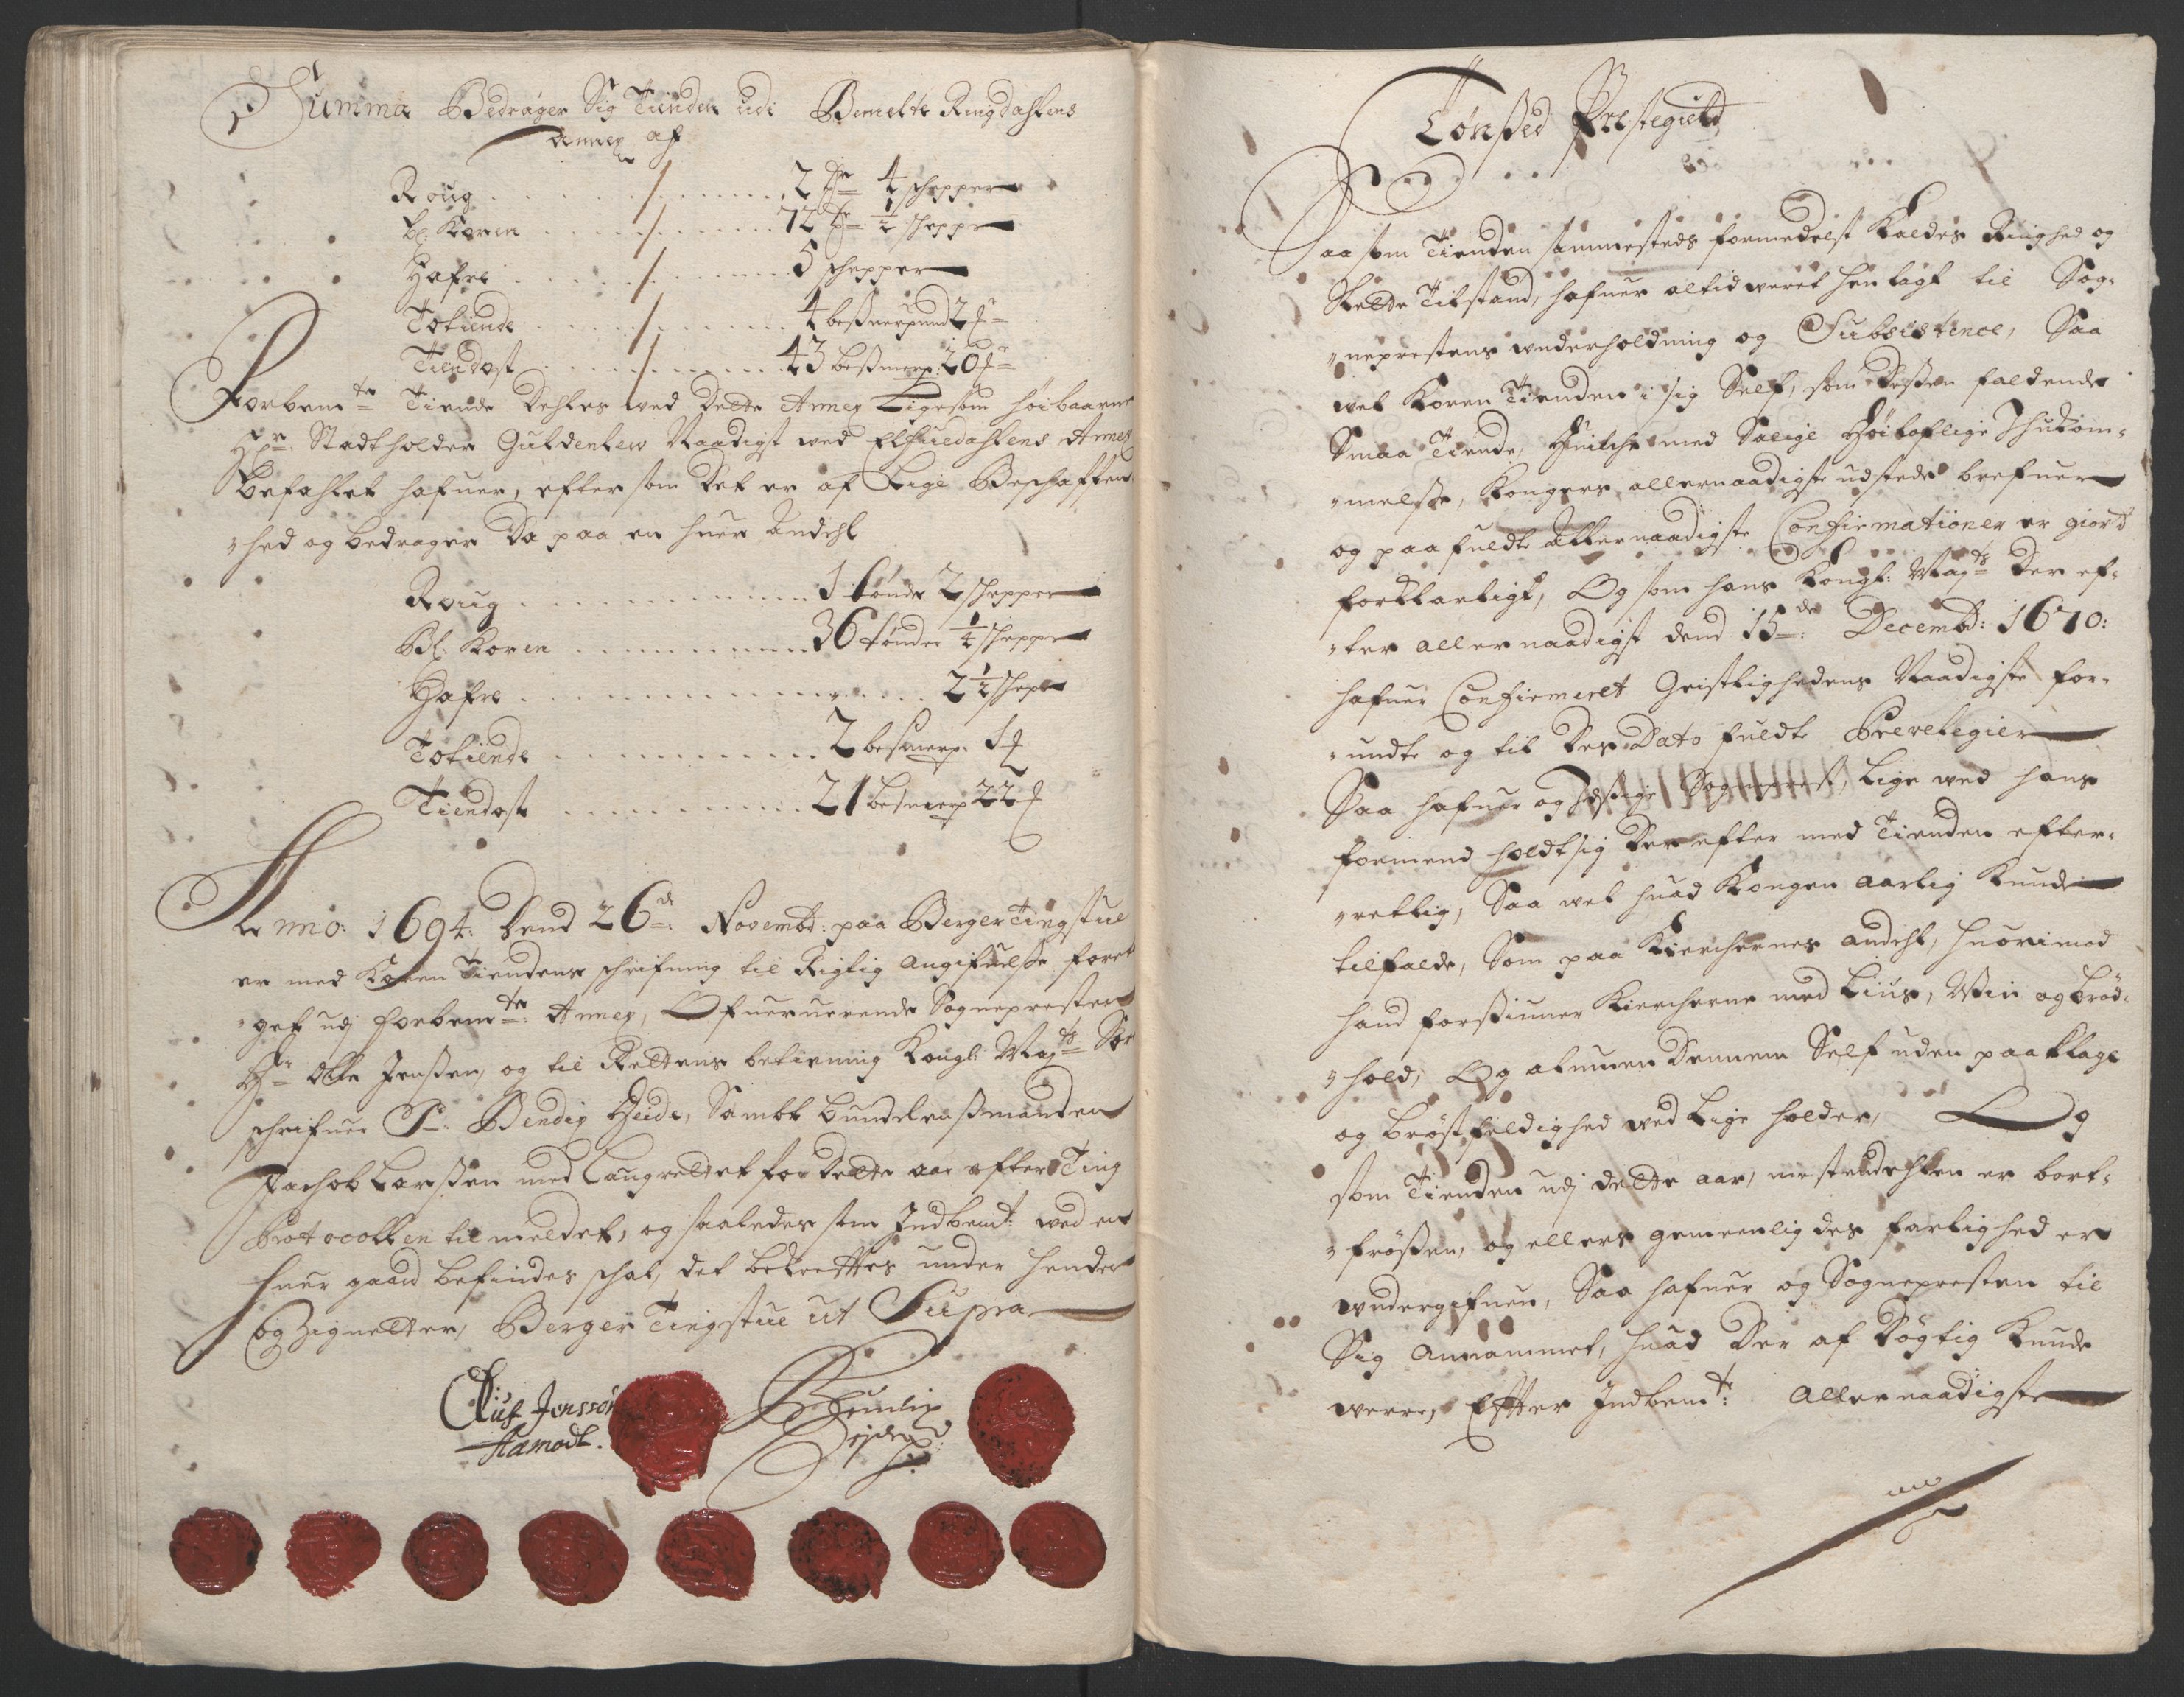 Summa Bedrager Sig Tienden udi Bemelte Ringdahlens
Annex af
Roug . . . 2 Tr 4 schepper
bl: Koren . . . 72 Tr ½ scheppe
Hafre . . . 5 schepper
Totiende . . . 4 besmerpund 2
Tiendost . . . 43 besmerp: 20
Forbemte Tiende dehles ved dette Annex Ligesom höibaarne
Hr: Stadtholder Guldenlew Naadigst ved Elfuedahlens Annex
befahlet hafuer, eftersom det er af Lige Beschaffen-
hed og bedrager da paa en huer Andehl
Roug . . . 1 tønde 2 schepper
Bl: Koren . . . 36 tønder ¼ scheppe
Hafre . . . 2½ schepe
Totiende . . . 2 besmerp: 1
Tiendost . . . 21 besmerp 22
Anno: 1694: Dend 26de: Novembr: paa Berger Tingstue
er med Koren Tiendens schrifning til Rigtig angifuelse foreta
get udj forbemte: Annex, Ofuerverende Sognepresten
Hr Olle Jenssen, og til Rettens betiening Kongl: Mayts Sor
schrifuer Sr: Bendix Heide, Sambt bundelensmanden
Jachob Larssen med Laugrettet for dette aar efter Ting
Protocollen tilmeldet, og saaledes som Indbemt: ved en
huer gaard befindes schal, det bekreftes under hender
og Zignetter, Berger Tingstue ut Supra
Oluf Jenssön
Aamodt.
Tønsed Prestegield
Saa som Tienden sammesteds formedelst Kaldes Ringhed og
slette Tilstand, hafuer altid veret henlagt til Sog-
neprestens underholdning og Subsistence, Saa
vel Koren Tienden i sig Self, som dessen faldende
Smaa Tiende, Huilche med Salige Høiloflige Ihukom-
melse, Kongers allernaadigste udstede brefuer
og paafuldte allernaadigste Confirmationer er giort
forklarligt, Og som hans Kongl: Mayts der ef-
ter allernaadigst dend 15de: Decembr: 1670:
hafuer Confirmeret Geistlighedens Naadigste for-
undte og til des Dato fuldte Previlegier
Saa hafuer og Lige ved hans
formend holdt sig der efter med Tienden efter-
rettlig, Saa vel huad Kongen aarlig Kunde
tilfalde, Som paa Kierchernes andehl, huorimod
hand forsiuner Kiercherne med Lius, Viin og brød-
hold, Og dennem Self uden paaklage
og brøstfeldighed ved Lige holder, Og
som Tienden udj dette aar, mestendehlen er bort-
frøssen, og ellers gemeenlig des farlighed er
undergifuen, Saa hafuer og Sognepresten til
Sig annammet, huad der af døgtig Kunde
verre, Efter Indbemt: Allernaadigste